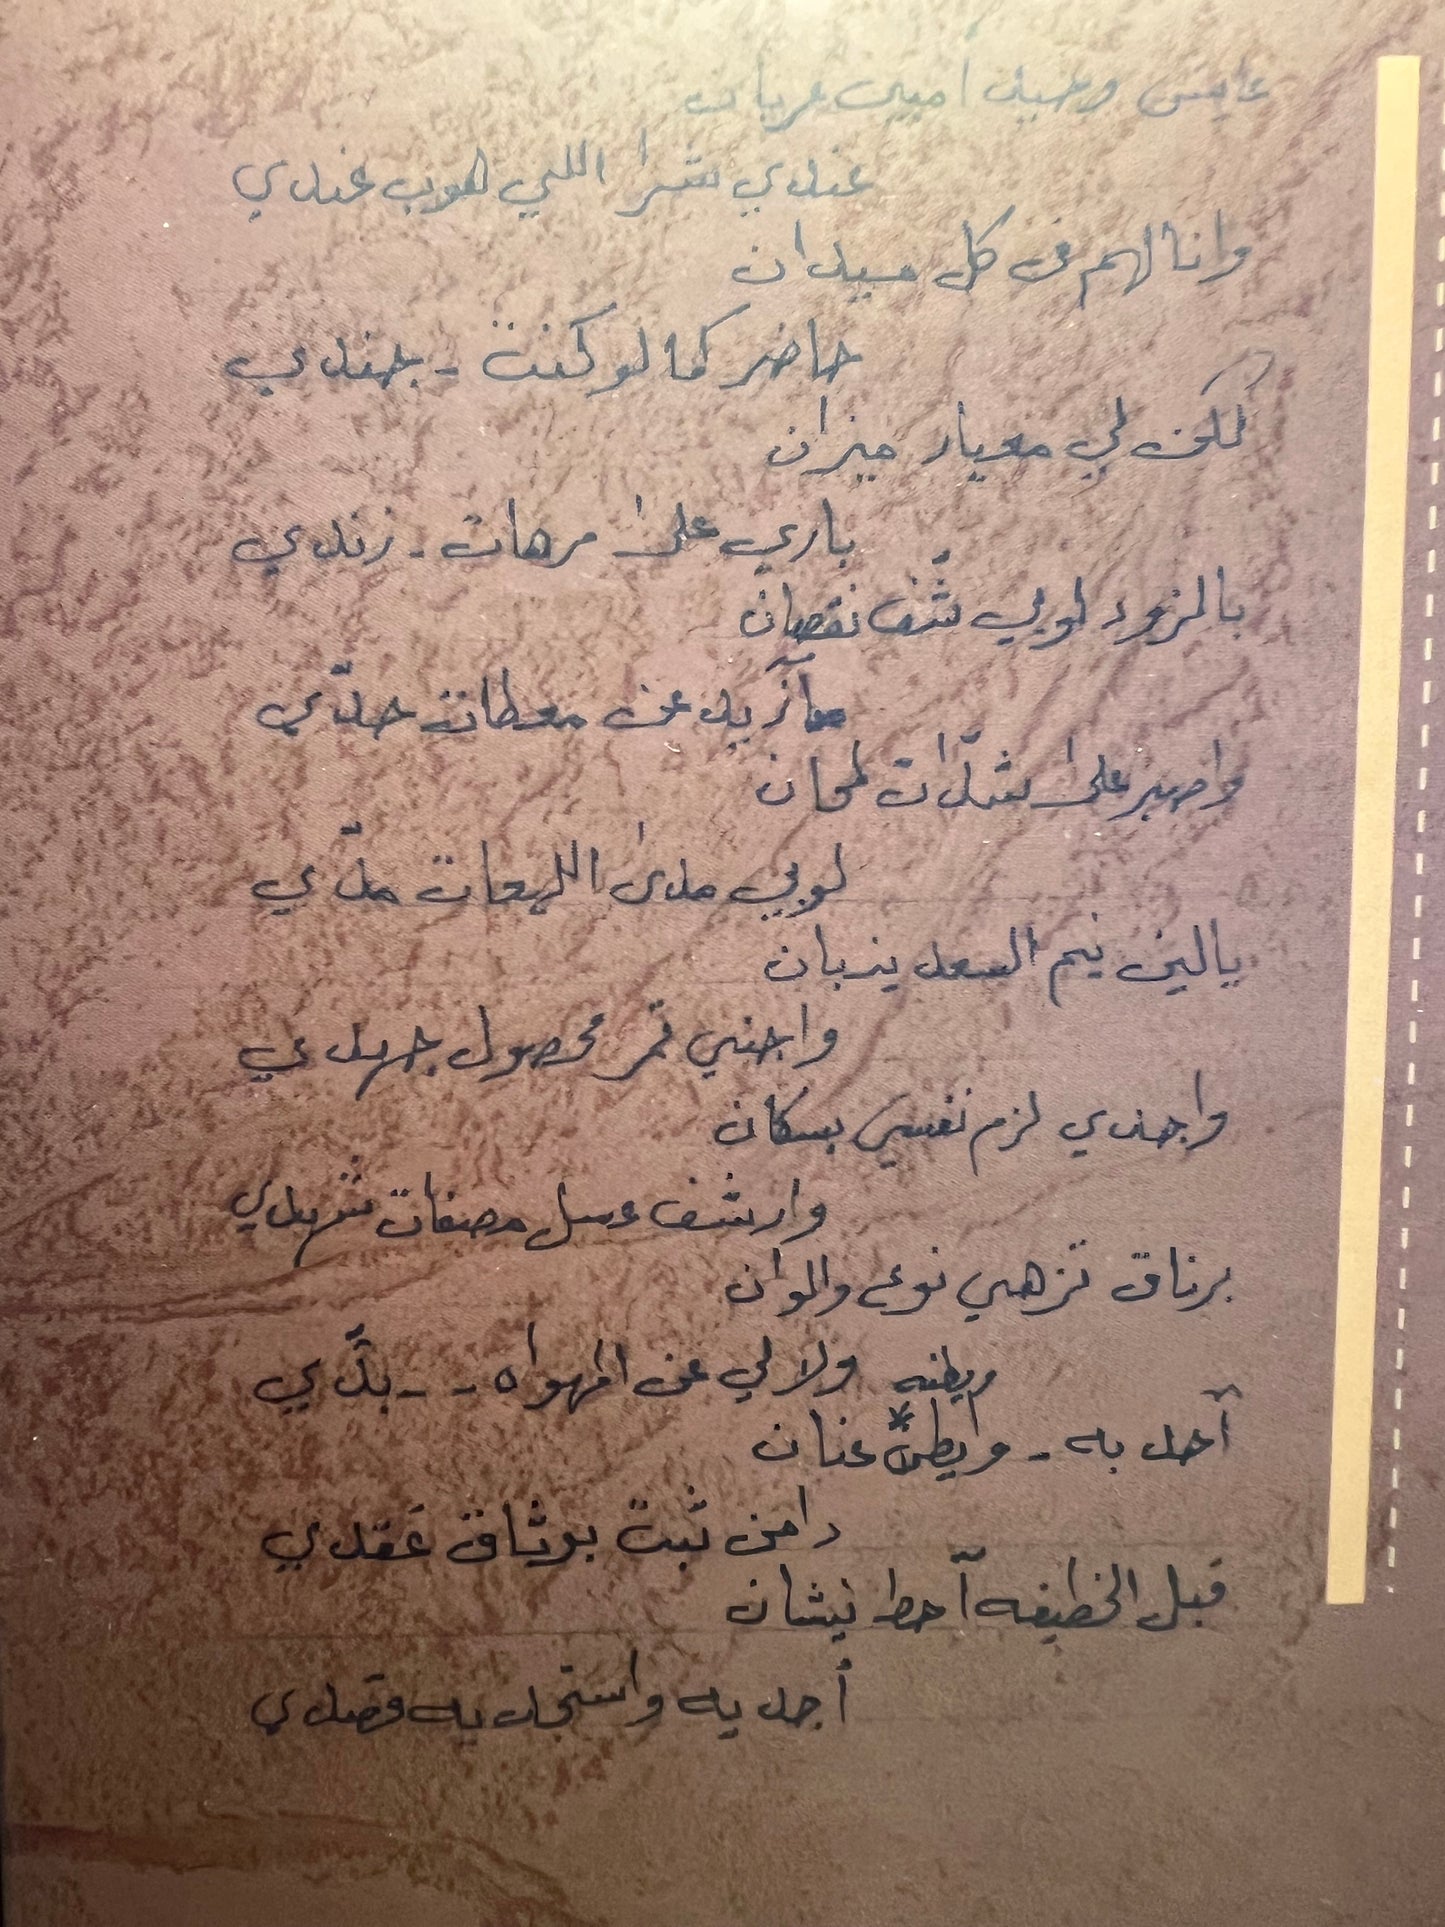 عايش وحيد امبين عربان
عندي سرا اللي هوب عندي
وانا لهم في كل ميدان
حاضر كما لو كنت - جندي
لكن لي معيار ميزان
باري على مرهات - زندي
بالزود لوبي شف نقصان
مآزيد عن معطات حدّي
واصبر على شدّات لمحان
لوبي مدى اللهعات مدّي
يالين نيم السعد يزبان
واجني ثمر محصول جهدي
واجدي لزم نفسي بسكان
وارشف عسل مصفات شهدي
برناق تزهي نوع والوان
ولا لي عن المهواه - - بدّي
ويطنه
آحد به - وايطنّ* عنان
دامن ثبت بوثاق عقدي
قبل الخطيفه آحط نيشان
أجد به واستجد به قصدي